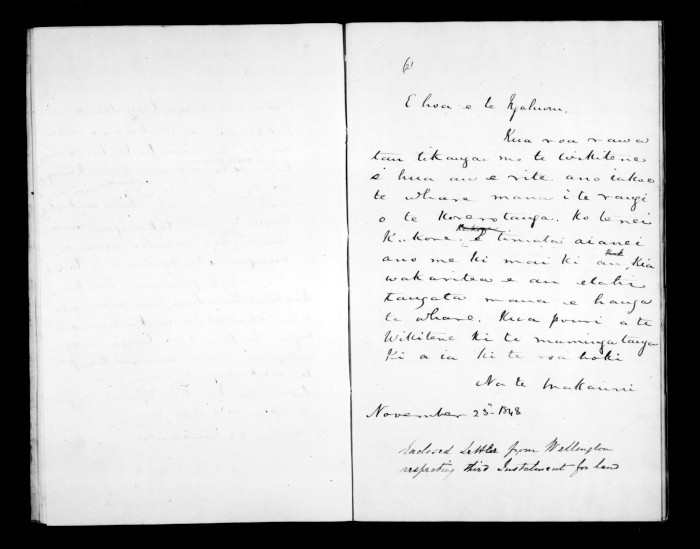 6
E hoa e te Ngahuru.
Kua roa rawa
tau tikanga mo te Wikitene
e hua au e rite ano iakoe
te whare mana i te rangi
o te Korerotanga. Ko tenei
Kakore. E timata aianei
ano me ki mai ki au, Kia
wakaritea e au etahi
tangata mana e hanga
te whare. Kua pouri a te
Wikitene ki te maminga tanga
Ki a ia ki te roa hoki
Na te Makarini
November 23rd 1848
Enclosed Letter from Wellington
respecting third Instalment for land